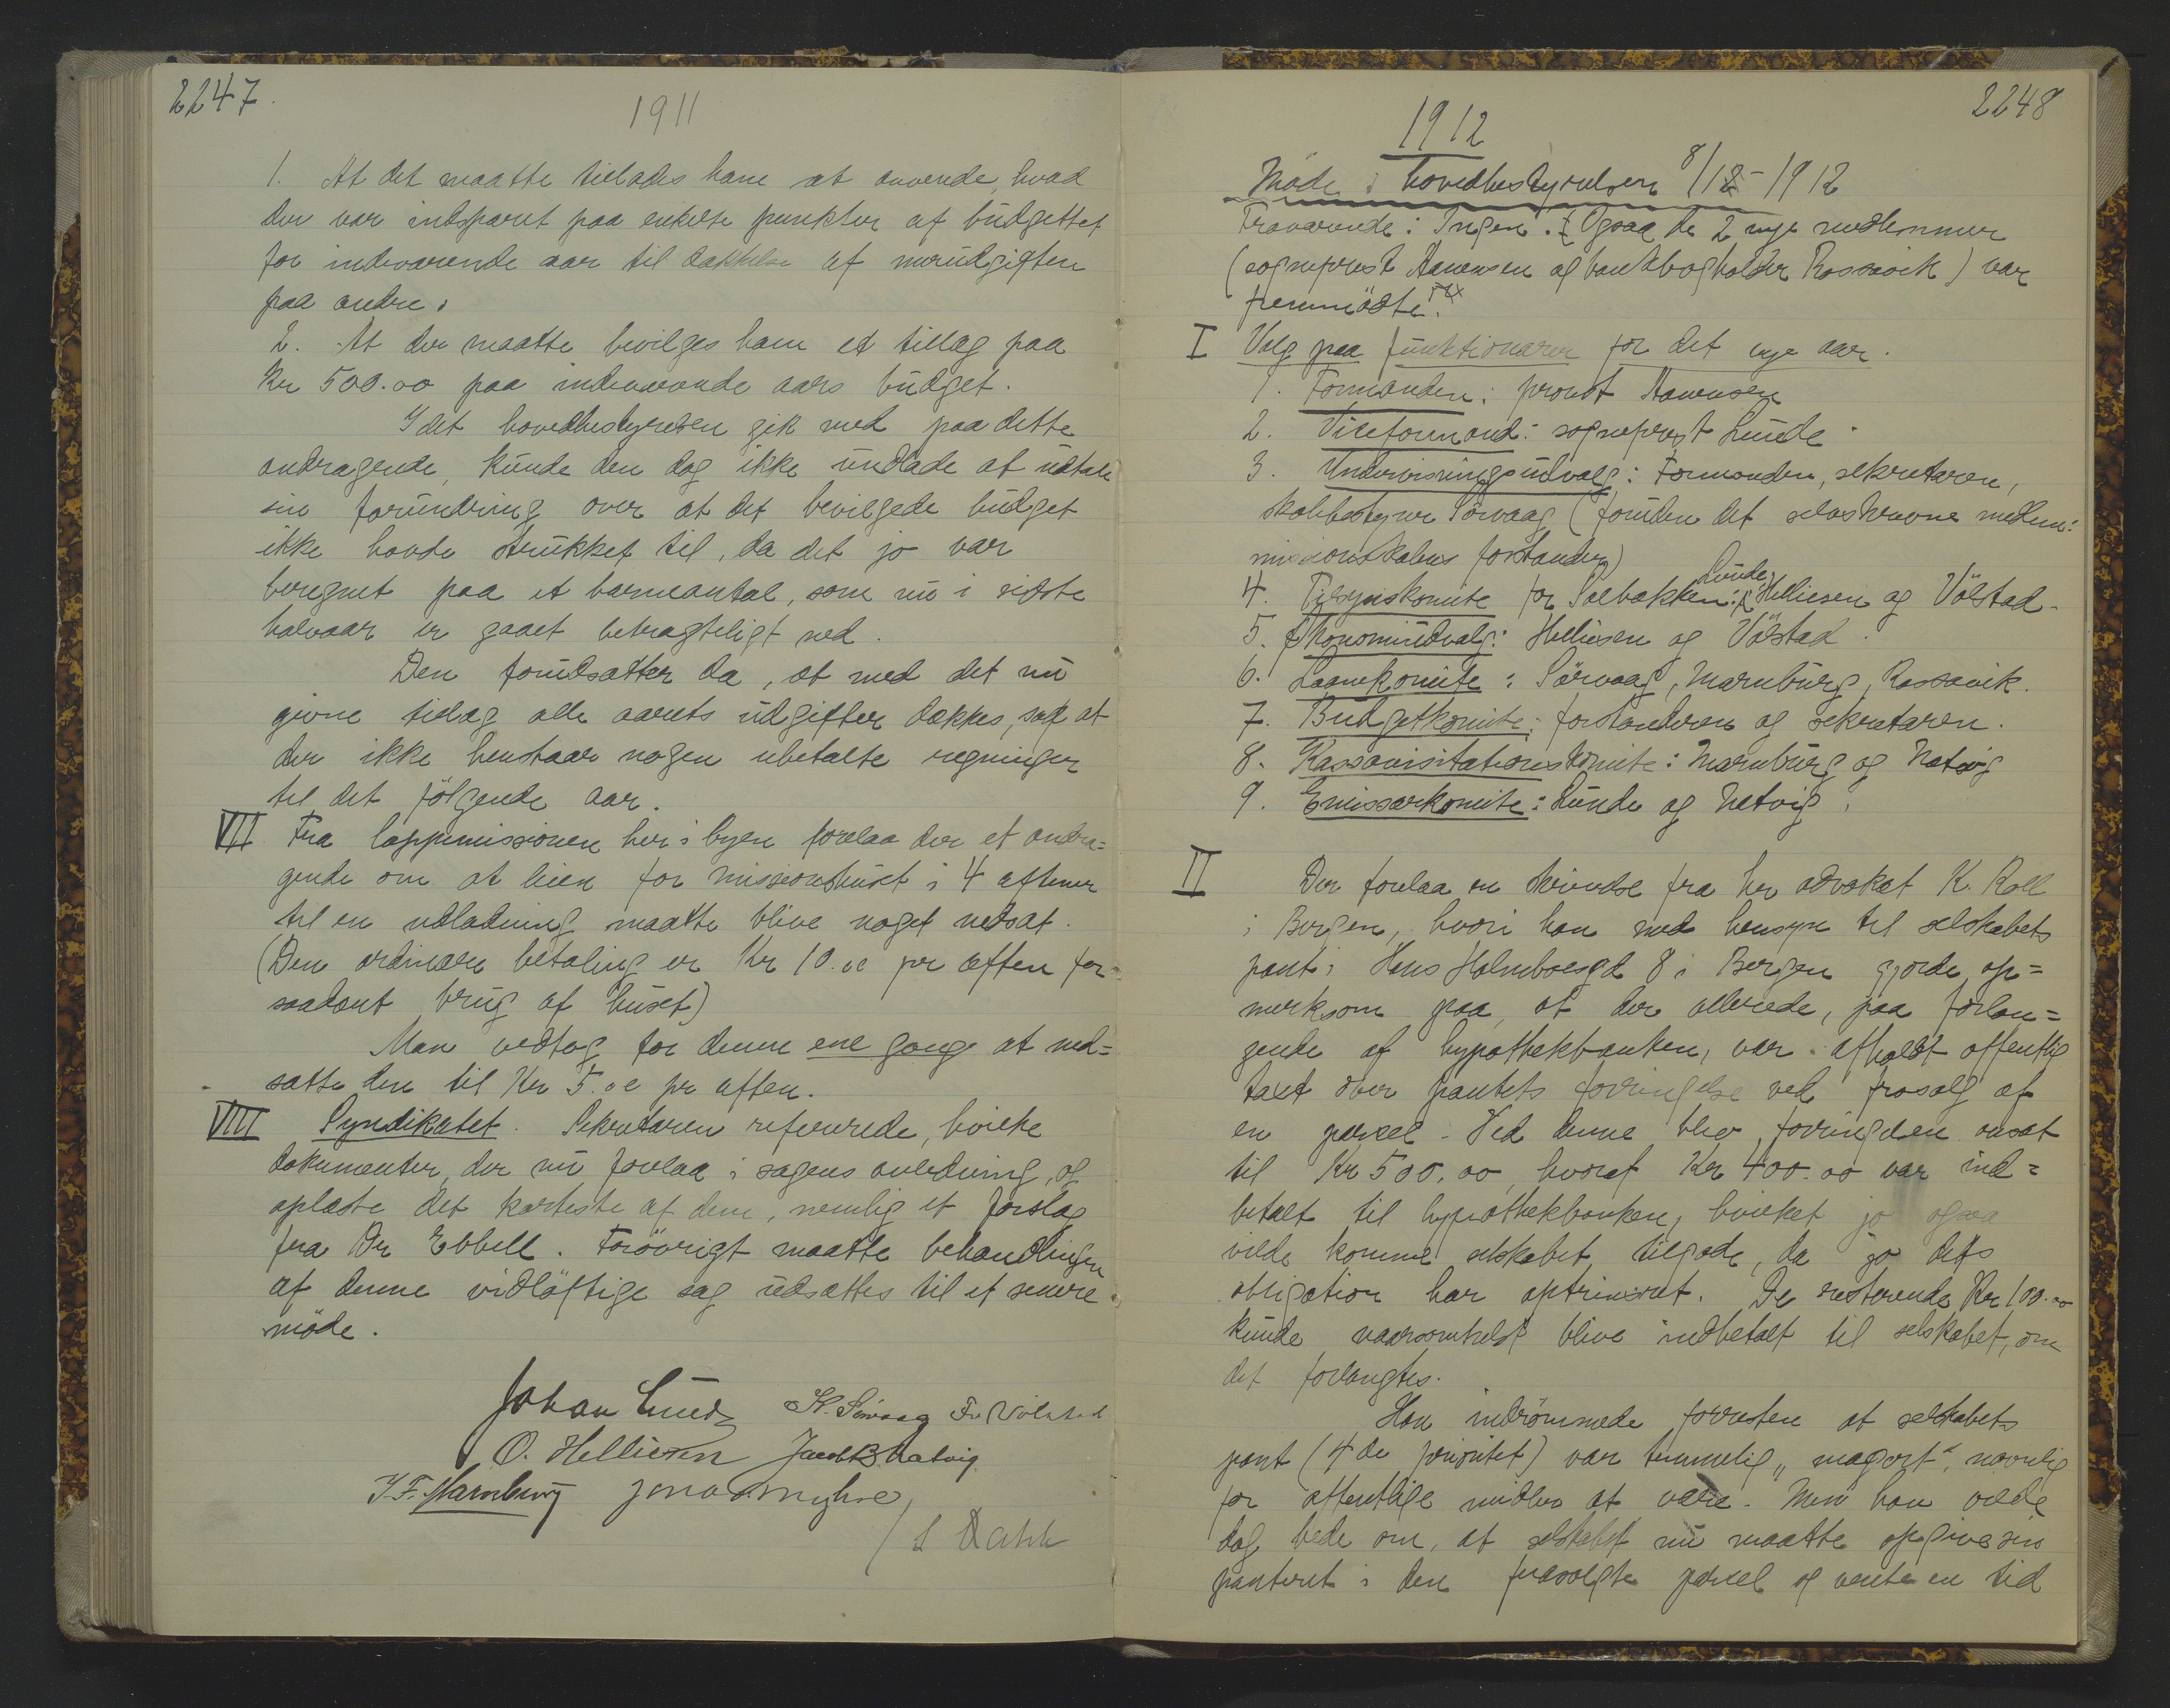 2247.
1911
1. At det maatte tillades ham at anvende, hvad
der var indsparet paa enkelte punkter af budgettet
for indeværende aar til dækkelse af merudgiften
paa andre.
2. At der maatte bevilges ham et tillæg paa
Kr 500.00 paa indeværende aars budget.
Idet hovedbestyrelsen gik med paa dette
andragende, kunde den dog ikke undlade at udtale
sin forundring over at det bevilgede budget
ikke havde strukket til, da det jo var
beregnet paa et barneantal, som nu i sidste
halvaar er gaaet betragteligt ned.
Den forudsætter da, at med det nu
givne tillæg alle aarets udgifter dækkes, saa at
der ikke henstaar nogen ubetalte regninger
til det følgende aar.
VII Fra lappemissionen her i byen forelaa der et andra=
gende om at leien for missionshuset i 4 aftener
til en udlodning maatte blive noget nedsat.
(Den ordinære betaling er Kr 10.oo pr aften for
saadant brug af huset)
Man vedtog for denne ene gang at ned=
sætte den til Kr 5.oo pr aften.
VIII Syndikatet. Sekretæren refererede, hvilke
dokumenter der nu forelaa i sagens anledning, og
oplæste det korteste af dem, nemlig et forslag
fra Dr Ebbell. Forøvrigt maatte behandlingen
af denne vidløftige sag udsættes til et senere
møde.
Johan Lunde K. Sørvaag Fr. Vølstad
O. Helliesen Jacob B. Natvig
J.F. Marnburg Jonas Myhre
/ L Dahle
2248
1912
Møde i hovedbestyrelsen 8/12-1912
Fraværende: Ingen. [Ogsaa de 2 nye medlemmer
(sogneprest Aanensen og bankbogholder Rossavik) var
fremmødte.]
I Valg paa funktionærer for det nye aar.
1. Formanden: provst Aanensen
2. Viceformand: sogneprest Lunde
3. Undervisningsudvalg: Formanden, sekretæren,
skolebestyrer Sørvaag (foruden det selvskrevne medlem:
missionsskolens forstander)
4. Tilsynskomite for Solbakken: Lunde, Helliesen og Vølstad.
5. Økonomiudvalg: Helliesen og Vølstad.
6. Laanekomite: Sørvaag, Marnburg, Rossavik.
7. Budgetkomite: forstanderen og sekretæren.
8. Kassavisitationskomite: Marnburg og Natvig
9. Emissærkomite: Lunde og Natvig.
II Der forelaa en skrivelse fra hr advokat K. Roll
i Bergen, hvori han med hensyn til selskabets
pant i Hans Holmboesgd 8 i Bergen gjorde op=
merksom paa, at der allerede, paa forlan=
gende af hypothekbanken, var afholdt offentlig
taxt over pantets forringelse ved frasalg af
en parcel. Ved denne blev forringelsen ansat
til Kr 500.00, hvoraf Kr 400.00 var ind=
betalt til hypothekbanken, hvilket jo ogsaa
vilde komme selskabet tilgode, da jo dets
obligation har optrinsret. De resterende Kr 100.oo
kunde naarsomhelst blive indbetalt til selskabet, om
det forlangtes.
Han indrømmede forresten at selskabets
pant (4de prioritet) var temmelig "magert", navnlig
for offentlige midler at være. Men han vilde
dog bede om, at selskabet nu maatte opgive sin
panteret i den frasolgte parcel og vente en tid